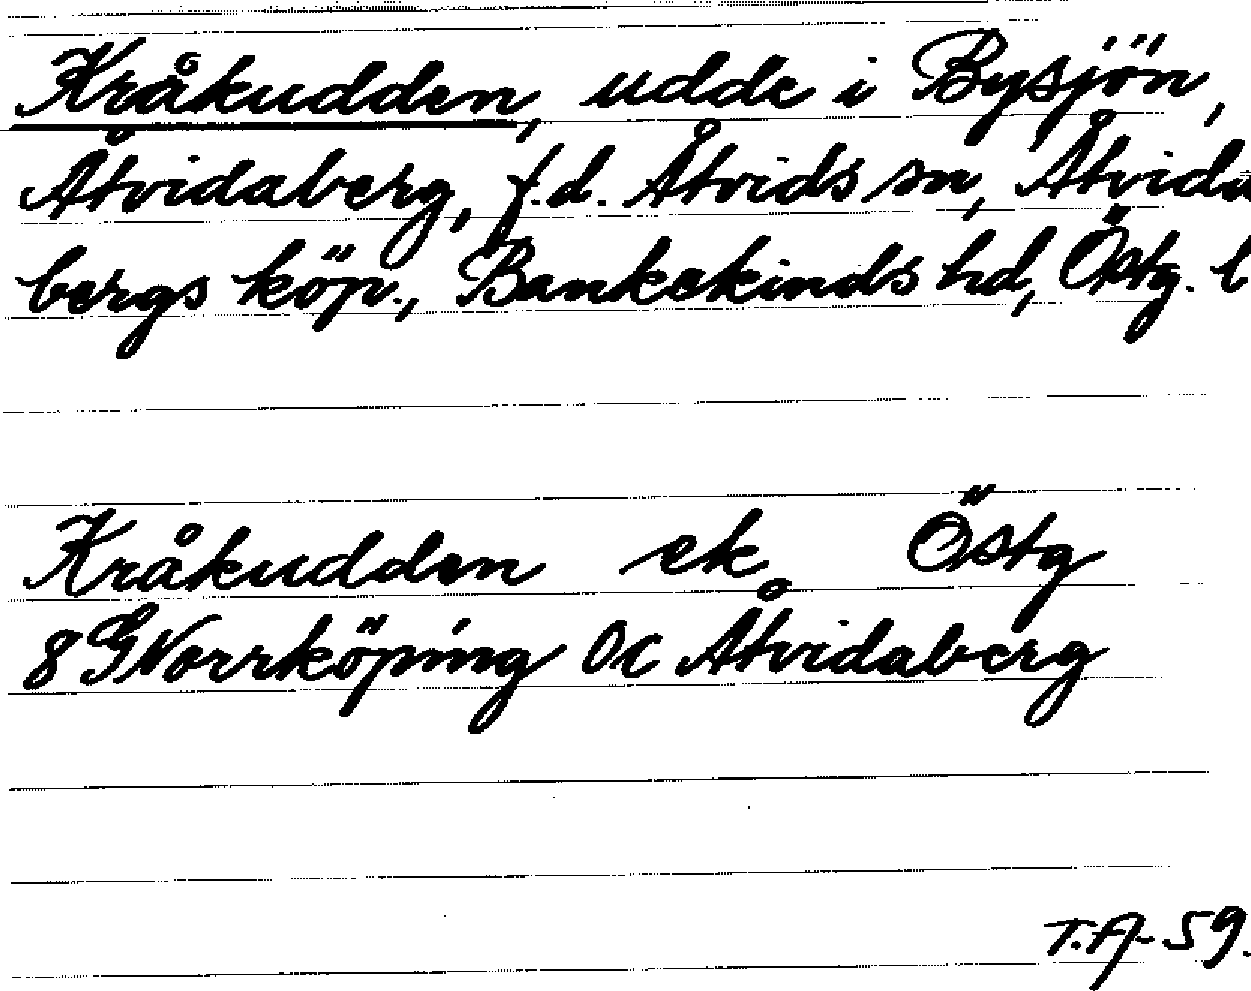 Kråkudden, udde i Bysjön,
Åtvidaberg, f.d. Åtvids sn, Åtvida
bergs köp., Bankekinds hd, Östg. l
Kråkudden ek. Östg
8 G Norrköping 0c Åtvidaberg
T.A-59.